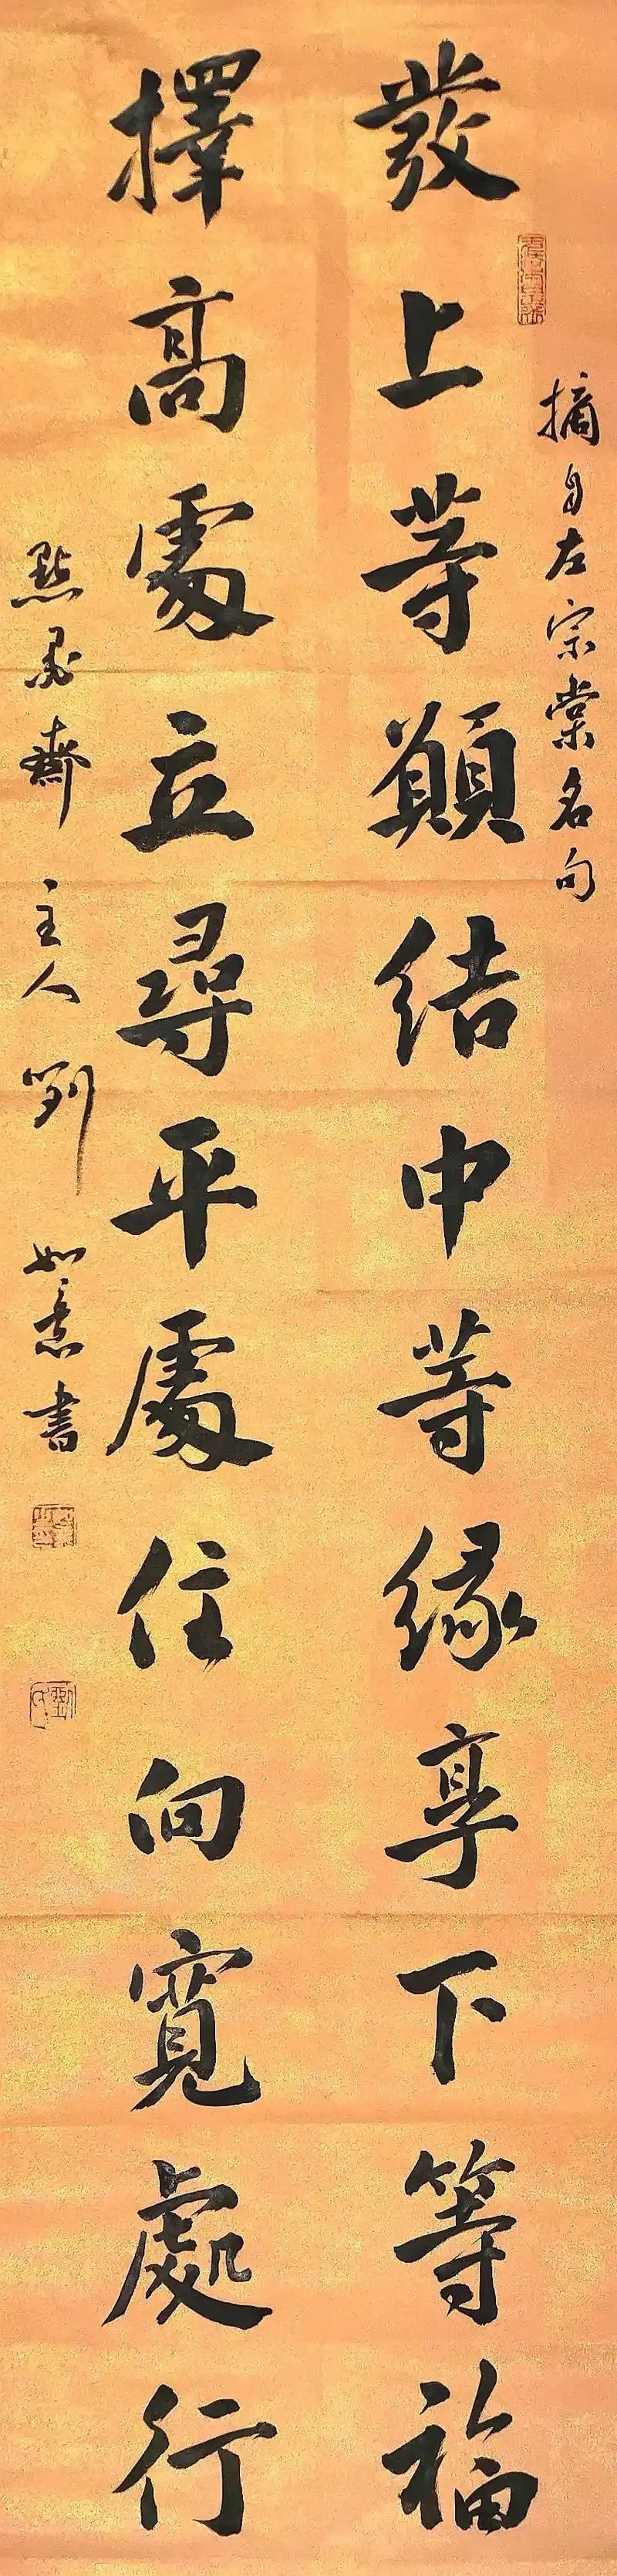 摘自左宗棠名句
發上等願結中等緣享下等福
擇高處立尋平處住向寬處行
點墨齋主人劉如意書